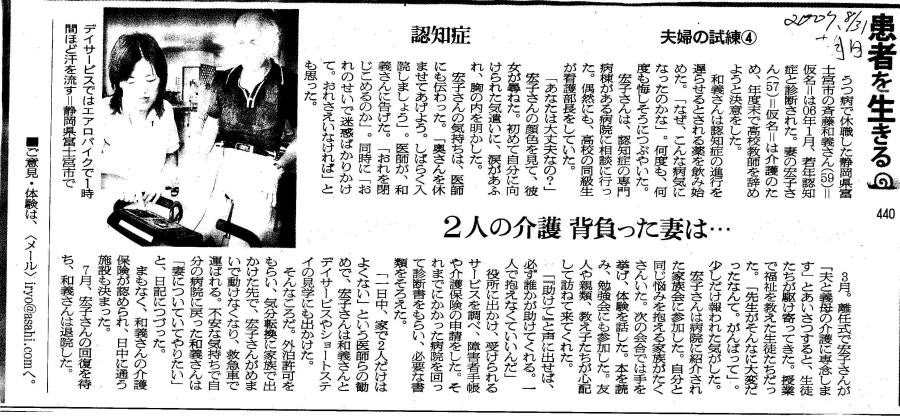 2007.8/31
患者を生きる
440
認知症
夫婦の試練④
2人の介護 背負った妻は…
うつ病で休職した静岡県富
士宮市の斉藤和義さん(59)＝
仮名＝は06年1月、若年認知
症と診断された。妻の宏子さ
ん(57)＝仮名＝は介護のた
め、年度末で高校教師を辞め
ようと決意をした。
和義さんは認知症の進行を
遅らせるとされる薬を飲み始
めた。「なぜ、こんな病気に
なったのかな」。何度も、何
度も悔しそうにつぶやいた。
宏子さんは、認知症の専門
病棟がある病院に相談に行っ
た。偶然にも、高校の同級生
が看護部長をしていた。
「あなたは大丈夫なの？」
宏子さんの顔色を見て、彼
女が尋ねた。初めて自分に向
けられた気遣いに、涙があふ
れ、胸の内を明かした。
宏子さんの気持ちは、医師
にも伝わった。「奥さんを休
ませてあげよう。しばらく入
院しましょう」。医師が、和
義さんに告げた。「おれを閉
じこめるのか」。同時に「お
れのせいで迷惑ばかりかけ
て。おれさえいなければ」と
も思った。
デイサービスではエアロバイクで1時
間ほど汗を流す＝静岡県富士宮市で
3月。離任式で宏子さんが
「夫と義母の介護に専念しま
す」とあいさつすると、生徒
たちが駆け寄ってきた。授業
で福祉を教えた生徒たちだっ
た。「先生がそんなに大変だ
ったなんて。がんばって」。
少しだけ報われた気がした。
宏子さんは病院に紹介され
た家族会に参加した。自分と
同じ悩みを抱える家族がたく
さんいた。次の会合では手を
挙げ、体験を話した。本を読
み、勉強会にも参加した。友
人や親類、教え子たちが心配
して訪ねて来てくれた。
「『助けて』と声に出せば、
必ず誰かが助けてくれる。一
人で抱えなくていいんだ」
役所に出かけ、受けられる
サービスを調べ、障害者手帳
や介護保険の申請をした。そ
れまでにかかった病院を回っ
て診断書をもらい、必要な書
類をそろえた。
「一日中、家で2人だけは
よくない」という医師らの勧
めで、宏子さんは和義さんと
デイサービスやショートステ
イの見学にも出かけた。
そんなころだ。外泊許可を
もらい、気分転換に家族で出
かけた先で、宏子さんがめま
いで動けなくなり、救急車で
運ばれる。不安な気持ちで自
分の病院に戻った和義さんは
「妻についていてやりたい」
と、日記につづった。
まもなく、和義さんの介護
保険が認められ、日中に通う
施設も決まった。
7月、宏子さんの回復を待
ち、和義さんは退院した。
■ご意見・体験は、〈メール〉iryo@asahi.comへ。